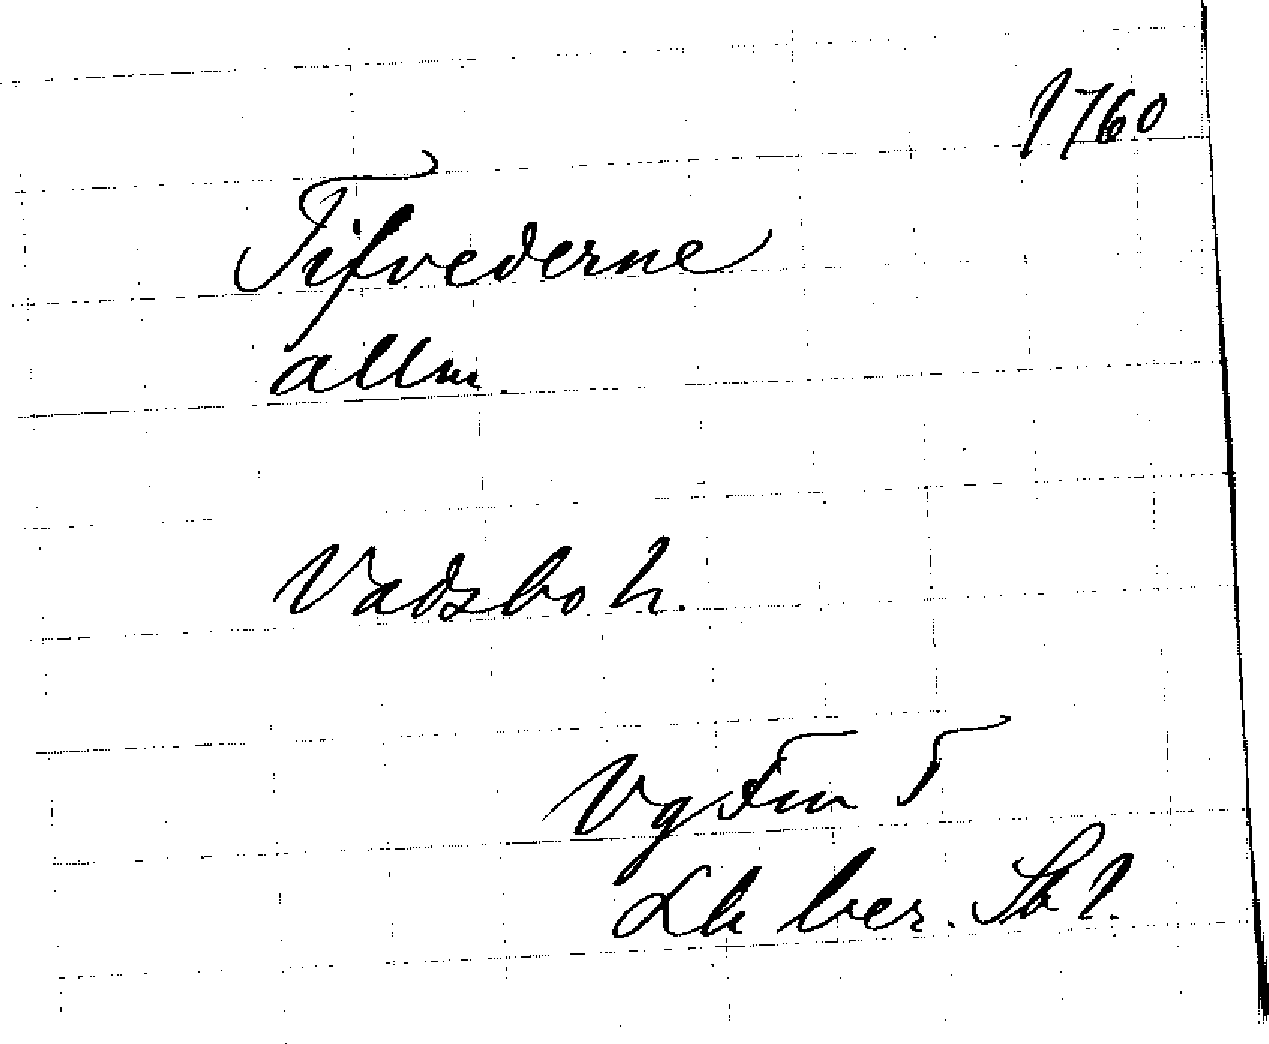 1760
Tifvederne
allm
Vadsbo h.
Vg Fm 5
Lh ber. Sk 1.